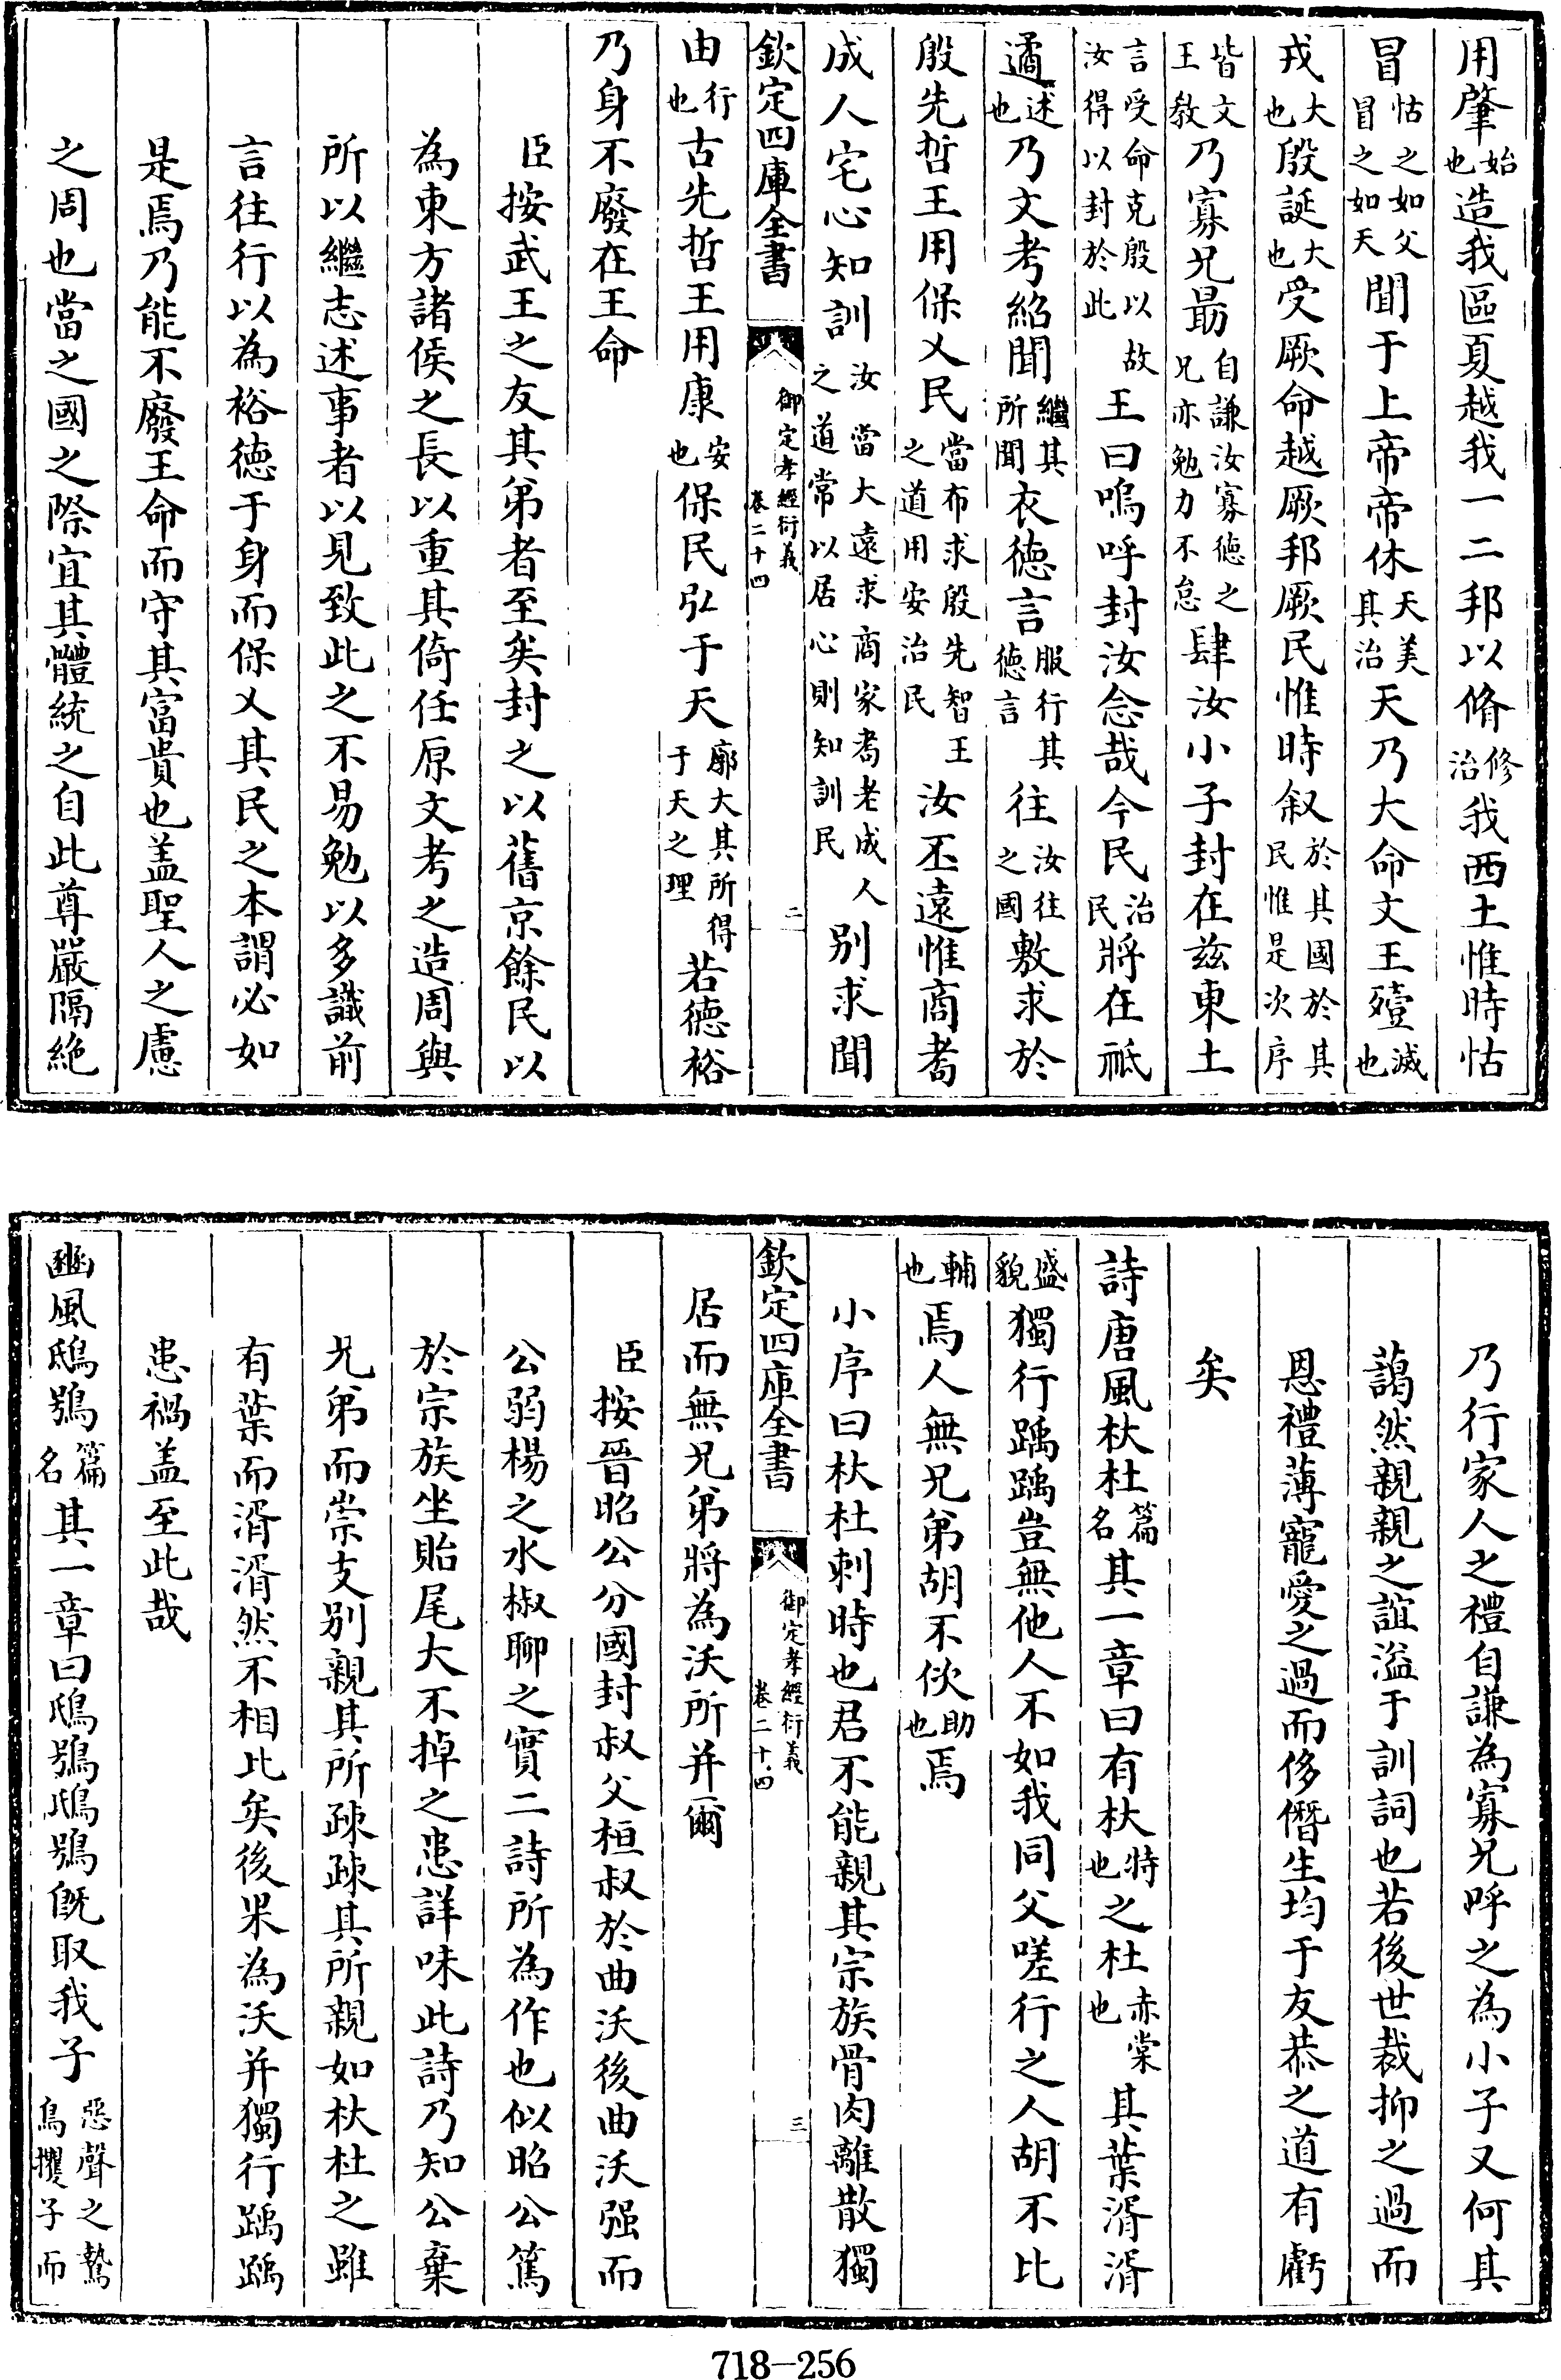 用肇始也造我區夏越我一二邦以脩修治我西土惟時怙
冒怙之如父冒之如天聞于上帝帝休天美其治天乃大命文王殪滅也
戎大也殷誕大也受厥命越厥邦厥民惟時叙於其國於其民惟是次序
皆文王敎乃寡兄最自謙汝寡徳之兄亦勉力不怠肆汝小子封在兹東土
言受命克殷以故汝得以封於此王曰嗚呼封汝念哉今民治民將在祗
遹述也乃文考紹聞繼其所聞衣徳言服行其徳言往汝往之國敷求於
殷先哲王用保乂民當布求殷先智王之道用安治民汝丕遠惟商耉
成人宅心知訓汝當大遠求商家耉老成人之道常以居心則知訓民别求聞
欽定四庫全書
御定孝經衍義
卷二十四
二
由行也古先哲王用康安也保民弘于天廓大其所得于天之理若徳裕
乃身不廢在王命
臣按武王之友其弟者至矣封之以舊京餘民以
為東方諸侯之長以重其倚任原文考之造周與
所以繼志述事者以見致此之不易勉以多識前
言往行以為裕徳于身而保乂其民之本謂必如
是焉乃能不廢王命而守其富貴也盖聖人之慮
之周也當之國之際宜其體統之自此尊嚴隔絶
乃行家人之禮自謙為寡兄呼之為小子又何其
藹然親親之誼溢于訓詞也若後世裁抑之過而
恩禮薄寵愛之過而侈僭生均于友恭之道有虧
矣
詩唐風杕杜篇名其一章曰有杕特也之杜赤棠也其葉湑湑
盛貌獨行踽踽豈無他人不如我同父嗟行之人胡不比
輔也焉人無兄弟胡不佽助也焉
小序曰杕杜刺時也君不能親其宗族骨肉離散獨
欽定四庫全書
御定孝經衍義
卷二十四
三
居而無兄弟將為沃所并爾
臣按晉昭公分國封叔父桓叔於曲沃後曲沃强而
公弱楊之水椒聊之實二詩所為作也似昭公篤
於宗族坐貽尾大不掉之患詳味此詩乃知公棄
兄弟而崇支别親其所疎疎其所親如杕杜之雖
有葉而湑湑然不相比矣後果為沃并獨行踽踽
患禍盖至此哉
豳風鴟鴞篇名其一章曰鴟鴞鴟鴞旣取我子惡聲之鷙鳥攫子而
718-256